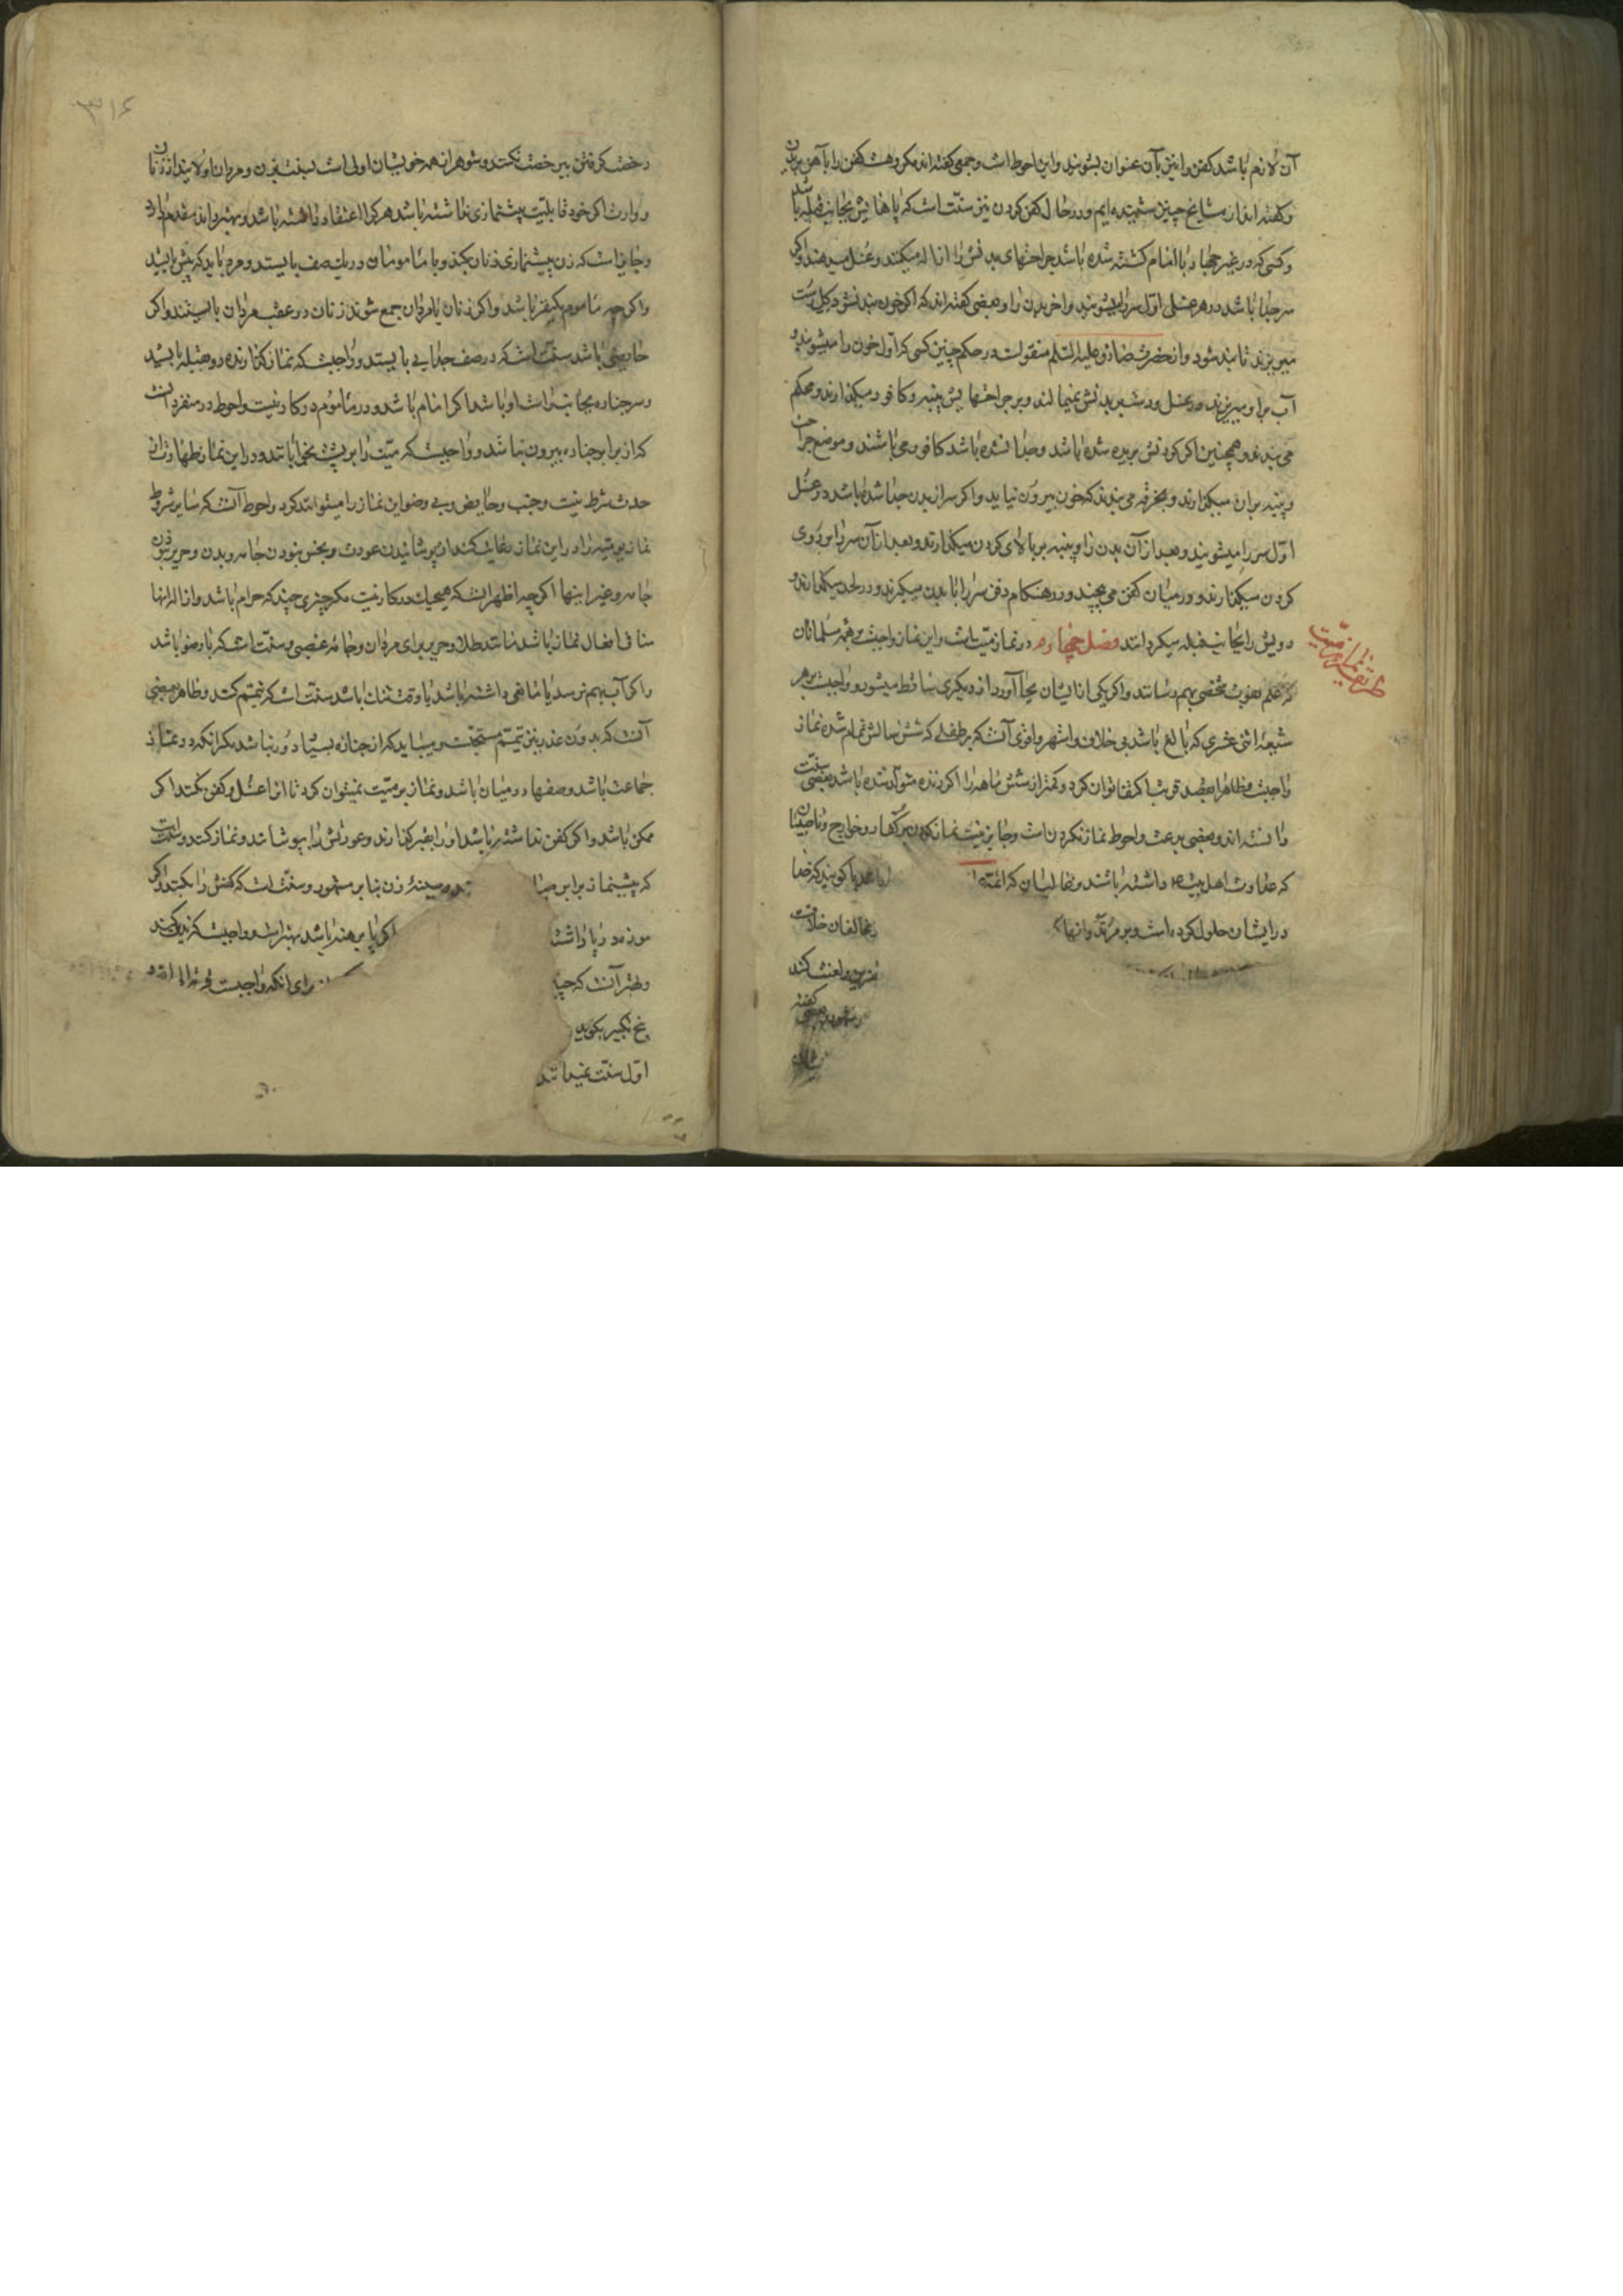 آن لازم باشد کفن را نیز بآن عنوان بشویند و این احوط است و جمعی گفته‌اند مکروهست کفن را بآهن بریدن
و گفته‌اند از مشایخ چنین شنیده‌ایم و در حال کفن کردن نیز سنت است که پاهایش بجانب قبله باشد
و کسی که در غیر جهاد با امام کشته شده باشد جراحتهای بدنش را ازاله میکنند و غسل میدهند و اگر
سر جدا باشد در هر غسلی اول سر را میشویند و آخر بدن را و بعضی گفته‌اند که اگر خون بند نشود گل رست
میریزند تا بند شود و از حضرت صادق علیه السلم منقولست در حکم چنین کسی که اول خون را میشویند و
آب بر او میریزند در غسل و دست بر بدنش نمیمالند و بر جراحتهایش پنبه و کافور میگذارند و محکم
می‌بندند و همچنین اگر گردنش بریده شده باشد و جدا نشده باشد کافور می‌پاشند و موضع جراحت
و پنبه بر آن میگذارند و بخرقه می‌بندند که خون بیرون نیاید و اگر سر از بدن جدا شده باشد در غسل
اول سر را میشویند و بعد از آن بدن را و پنبه بر بالای گردن میگذارند و بعد از آن سر را بر روی
گردن میگذارند و در میان کفن می‌پیچند و در هنگام دفن سر را با بدن میگیرند و در لحد میگذارند و
رویش را بجانب قبله میگردانند فصل چهارم در نماز میت است و این نماز واجبست بر همه مسلمانان
طریقه نماز میت
که علم بفوت شخصی بهم رسانند و اگر یکی از ایشان بجا آورد از دیگری ساقط میشود و واجبست بر هر
شیعه اثنی عشری که بالغ باشد بی خلاف و اشهر و اقوی آنست که بر طفلی که شش سالش تمام شده نماز
واجبست و ظاهرا بقصد قربت اکتفا توان کرد و کمتر از شش ساله را اگر زنده متولد شده باشد بعضی سنت
دانسته‌اند و بعضی بدعت و احوط نماز نکردن است و جایز نیست نماز کردن بر کفار و خوارج و ناصبیان
که عداوت اهل بیت داشته باشند و غالیان که ائمه را خدا گویند یا گویند که خدا
در ایشان حلول کرده است و بر مرتد و آنها مخالفان خلافت
نفرین و لعنت کند
گفته
رخصت گرفتن بی رخصت نکند و شوهر از همه خویشان اولی است نسبت بزن و مردان اولایند از زنان
و وارث اگر خود قابلیت پیشنمازی نداشته باشد هر که را اعتقاد داشته باشد و بهتر داند مقدم دارد
و جایز است که زن پیشنمازی زنان بکند و با مامومان در یک صف بایستد و مرد باید که پیش بایستد
و اگرچه ماموم یکنفر باشد و اگر زنان با مردان جمع شوند زنان در عقب مردان بایستند و اگر
حایضی باشد سنت است که در صف جدایی بایستد و واجبست که نماز گزارنده رو بقبله بایستد
و سر جنازه بجانب راست او باشد اگر امام باشد و در ماموم در کار نیست و احوط در منفرد آنست
که از برابر جنازه بیرون نباشد و واجبست که میت را بر پشت بخوابانند و در این نماز طهارت از
حدث شرط نیست و جنب و حایض و بی وضو این نماز را میتوانند کرد و احوط آنست که سایر شروط
نماز یومیه را در این نماز رعایت کند از پوشانیدن عورت و نجس نبودن جامه و بدن و حریر نبودن
جامه و غیر اینها اگرچه اظهر آنست که هیچیک در کار نیست مگر چیزی چند که حرام باشد و ازاله آنها
منافی افعال نماز باشد مانند طلا و حریر برای مردان و جامه غصبی و سنت است که با وضو باشد
و اگر آب بهم نرسد یا مانعی داشته باشد یا وقت تنگ باشد سنت است که تیمم کند و ظاهر بعضی
آنست که بدون عذر نیز تیمم مستحبست و میباید که از جنازه بسیار دور نباشد مگر آنکه در نماز
جماعت باشد و صفها در میان باشد و نماز بر میت نمیتوان کرد تا او را غسل و کفن نکنند اگر
ممکن باشد و اگر کفن نداشته باشد او را بقبر گذارند و عورتش را بپوشانند و نماز کنند و سنت است
که پیشنماز برابر میان و سینه زن بنا بر مشهور و سنت است که کفش را بکند و اگر
موزه در پا داشته اگر پا برهنه باشد بهتر است و واجبست که نیت کند
و بهتر آنست که برای آنکه واجبست قربة الی الله و
پنج تکبیر بگوید
اول سنت نمیدانند
۳۱۶